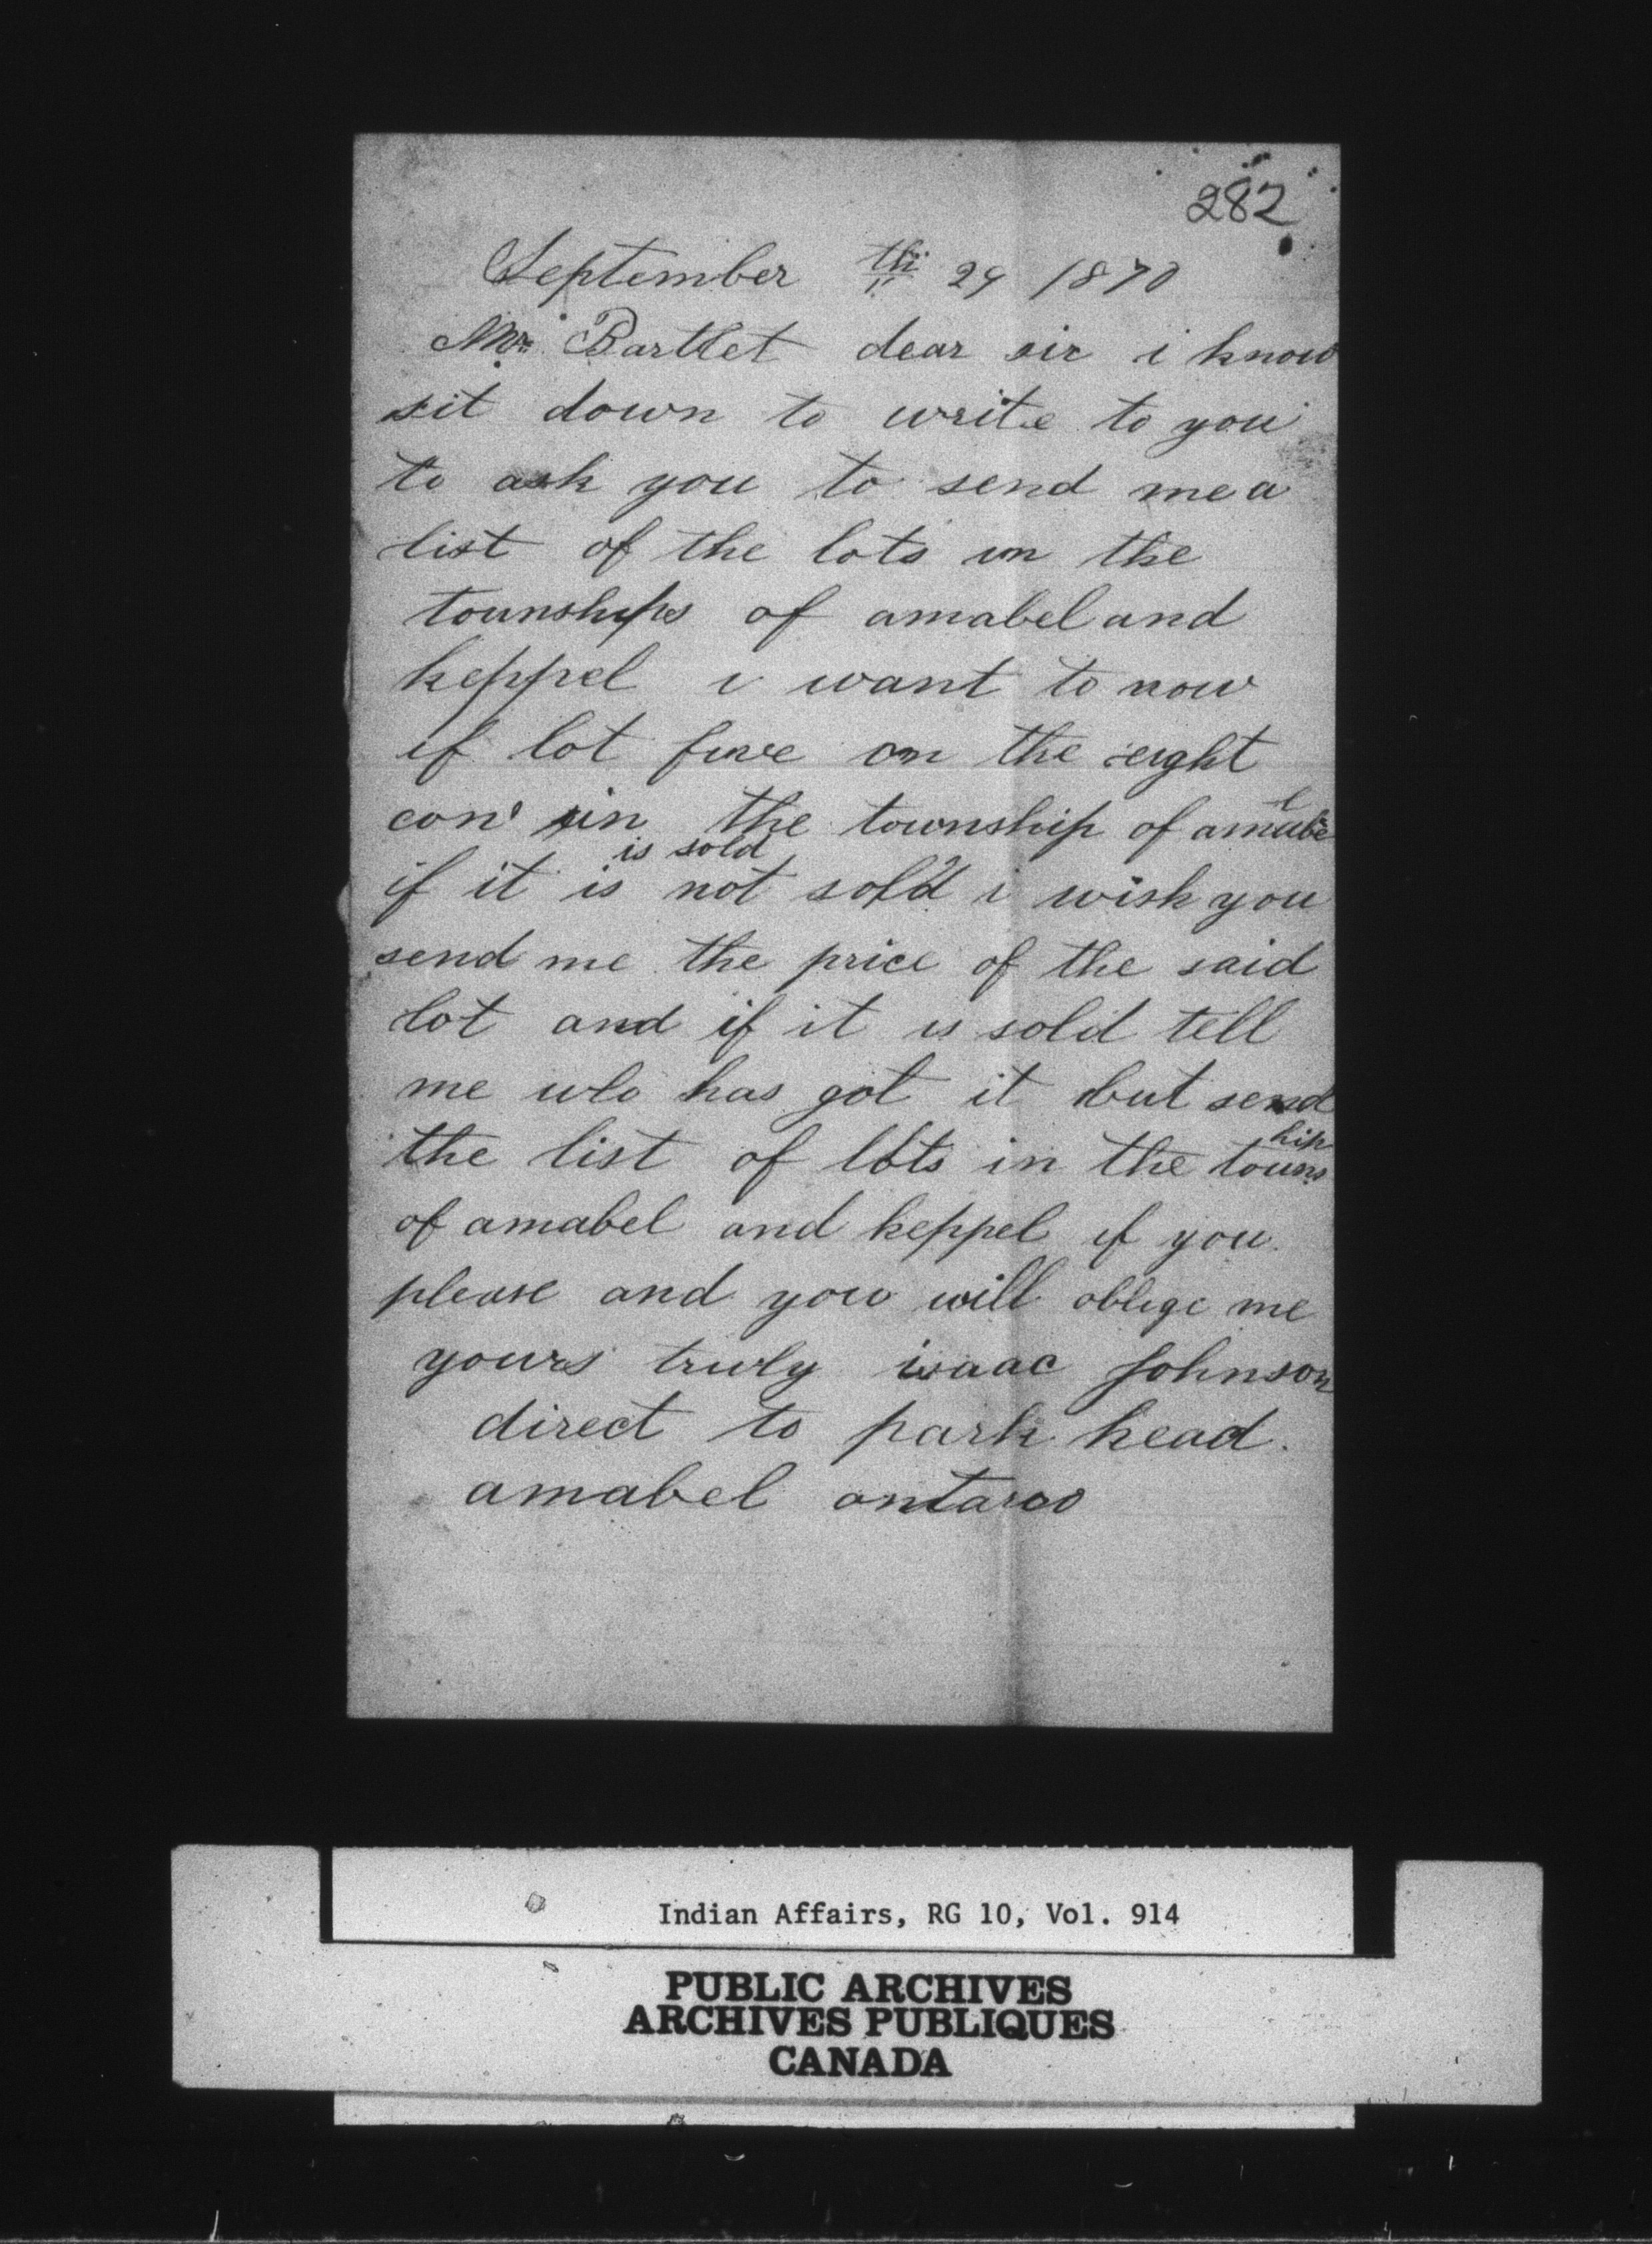 282
September th 29 1870
Mr. Bartlet dear sir i know
sit down to write to you
to ask you to send me a
list of the lots in the
tounships of amabel and
keppel i want to now
if lot five on the eight
con in the township of amabel
is sold
if it is not sold i wish you
send me the price of the said
lot and if it is sold tell
me who has got it but send
the list of lots in the tounship
of amabel and keppel if you
please and you will oblige me
yours truly isaac Johnson
direct to park head.
amabel ontaroo
Indian Affairs, RG 10, Vol. 914
PUBLIC ARCHIVES
ARCHIVES PUBLIQUES
CANADA